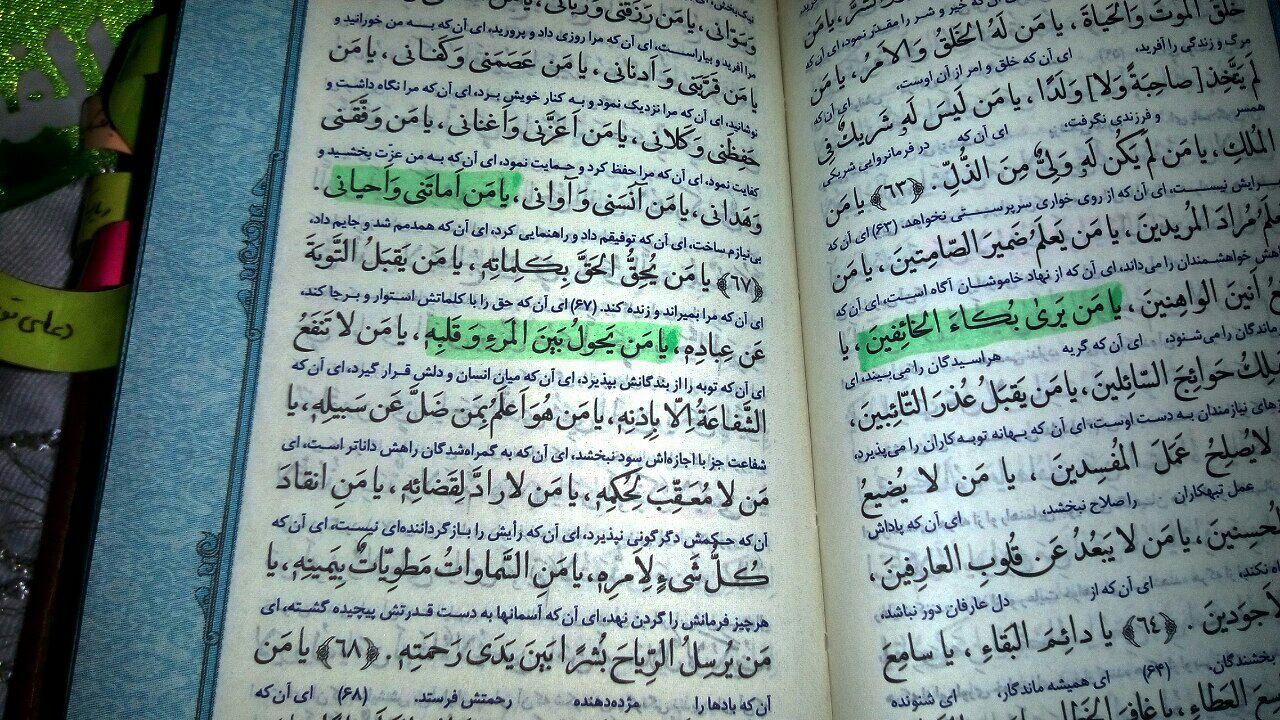 خَلَقَ الْمَوْتَ وَالْحَیاةَ ، یا مَن لَهُ الْخَلْقُ وَالْاَمْرُ ، یا مَن
مرگ و زندگی را آفرید، ای آن که خلق و امر از آن اوست، ای آن که
لَمْ یَتَّخِذْ [صاحِبَةً وَلا] وَلَدًا ، یا مَن لَیْسَ لَهُ شَریكٌ فِی
همسر و فرزندی نگرفت، ای آن که در فرمانروایی شریکی
الْمُلكِ، یا مَن لَمْ یَكُن لَهُ وَلِیٌّ مِنَ الذُّلِّ . ﴿٦٣﴾ یا مَن
برایش نیست، ای آن که از روی خواری سرپرستی نخواهد. (۶۳) ای آن که
مُرادَ الْمُریدینَ ، یا مَن یَعلَمُ ضَمیرَ الصّامِتینَ ، یا مَن
خواهشمندان را می‌داند، ای آن که از نهاد خاموشان آگاه است، ای آن که
اَنینَ الْواهِنینَ ، یا مَن یَریٰ بُكاءَ الْخائِفینَ ، یا
را می‌شنود، ای آن که گریه هراسیدگان را می‌بیند، ای
حَوائِجَ السّائِلینَ، یا مَن یَقبَلُ عُذرَ التّائِبینَ،
نیازمندان به دست اوست، ای آن که بهانه توبه کاران را می‌پذیرد،
لایُصلِحُ عَمَلَ الْمُفسِدینَ ، یا مَن لا یُضیعُ
عمل تبهکاران را صلاح نبخشد، ای آن که پاداش
یا مَن لا یَبعُدُ عَن قُلوبِ العارِفینَ ،
نکند، ای آن که از دل عارفان دور نباشد،
﴿٦٤﴾ یا دائِمَ البَقاءِ ، یا سامِعَ
بخشندگان. (۶۴) ای همیشه ماندگار، ای شنونده
العَطاءِ ، یا غافِرَ
یا مَن رَزَقَنی
مرا آفرید و بیاراست، ای آن که مرا روزی داد و پرورید، ای آن که به من خورانید و
یا مَن قَرَّبَنی وَ اَدنانی ، یا مَن عَصَمَنی وَكَفانی ، یا مَن
نوشانید، ای آن که مرا نزدیک نمود و به کنار خویش برد، ای آن که مرا نگاه داشت و
حَفِظَنی وَكَلانی ، یا مَن اَعَزَّنی وَاَغنانی ، یا مَن وَفَّقَنی
کفایت نمود، ای آن که مرا حفظ کرد و حمایت نمود، ای آن که به من عزّت بخشید و
وَهَدانی ، یا مَن آنَسَنی وَ آوانی ، یا مَن اَماتَنی وَاَحیانی .
بی‌نیازم ساخت، ای آن که توفیقم داد و راهنمایی کرد، ای آن که همدمم شد و جایم داد،
﴿٦٧﴾ یا مَن یُحِقُّ الحَقَّ بِكَلِماتِهِ ، یا مَن یَقبَلُ التَّوبَةَ
ای آن که مرا بمیراند و زنده کند. (۶۷) ای آن که حق را با کلماتش استوار و برجا کند،
عَن عِبادِهِ ، یا مَن یَحولُ بَینَ المَرءِ وَ قَلبِهِ ، یا مَن لا تَنفَعُ
ای آن که توبه را از بندگانش بپذیرد، ای آن که میان انسان و دلش قرار گیرد، ای آن که
الشَّفاعَةُ اِلّا بِاِذنِهِ، یا مَن هُوَ اَعلَمُ بِمَن ضَلَّ عَن سَبیلِهِ، یا
شفاعت جز با اجازه‌اش سود نبخشد، ای آن که به گمراه‌شدگان راهش داناتر است، ای
مَن لا مُعَقِّبَ لِحُكمِهِ ، یا مَن لا رادَّ لِقَضائِهِ ، یا مَنِ انقادَ
آن که حکمش دگرگونی نپذیرد، ای آن که رأیش را بازگرداننده‌ای نیست، ای آن که
كُلُّ شَیءٍ لِاَمرِهِ ، یا مَنِ السَّماواتُ مَطوِیّاتٌ بِیَمینِهِ، یا
هر چیز فرمانش را گردن نهد، ای آن که آسمانها به دست قدرتش پیچیده گشته، ای
مَن یُرسِلُ الرِّیاحَ بُشرًا بَینَ یَدَی رَحمَتِهِ . ﴿٦٨﴾ یا مَن
آن که بادها را مژده‌دهنده رحمتش فرستد. (۶۸) ای آن که
دعای